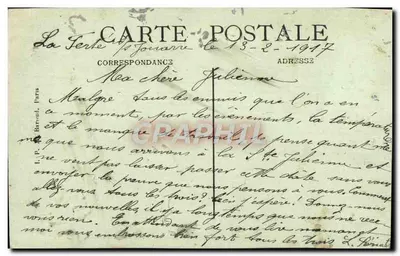 CARTE POSTALE
La Ferte s/Jouarre le 13-2-1917
CORRESPONDANCE ADRESSE
Ma chère Julienne
Malgré tous les ennuis que l'on a en
ce moment, par les évènements, la tempéra
CPARAMA
Et le manque de je pense quand mê
me que nous arrivons à la Ste Julienne et
ne veut pas laisser passer cette date sans vous
envoyer la preuve que nous pensons à vous. Comment
allez vous tous les trois? bien j'espère! Donnez nous
de vos nouvelles, il y a longtemps que nous ne rece
vons rien. En attendant de vous lire maman et
moi vous embrassons bien fort tous les trois L.
Paris